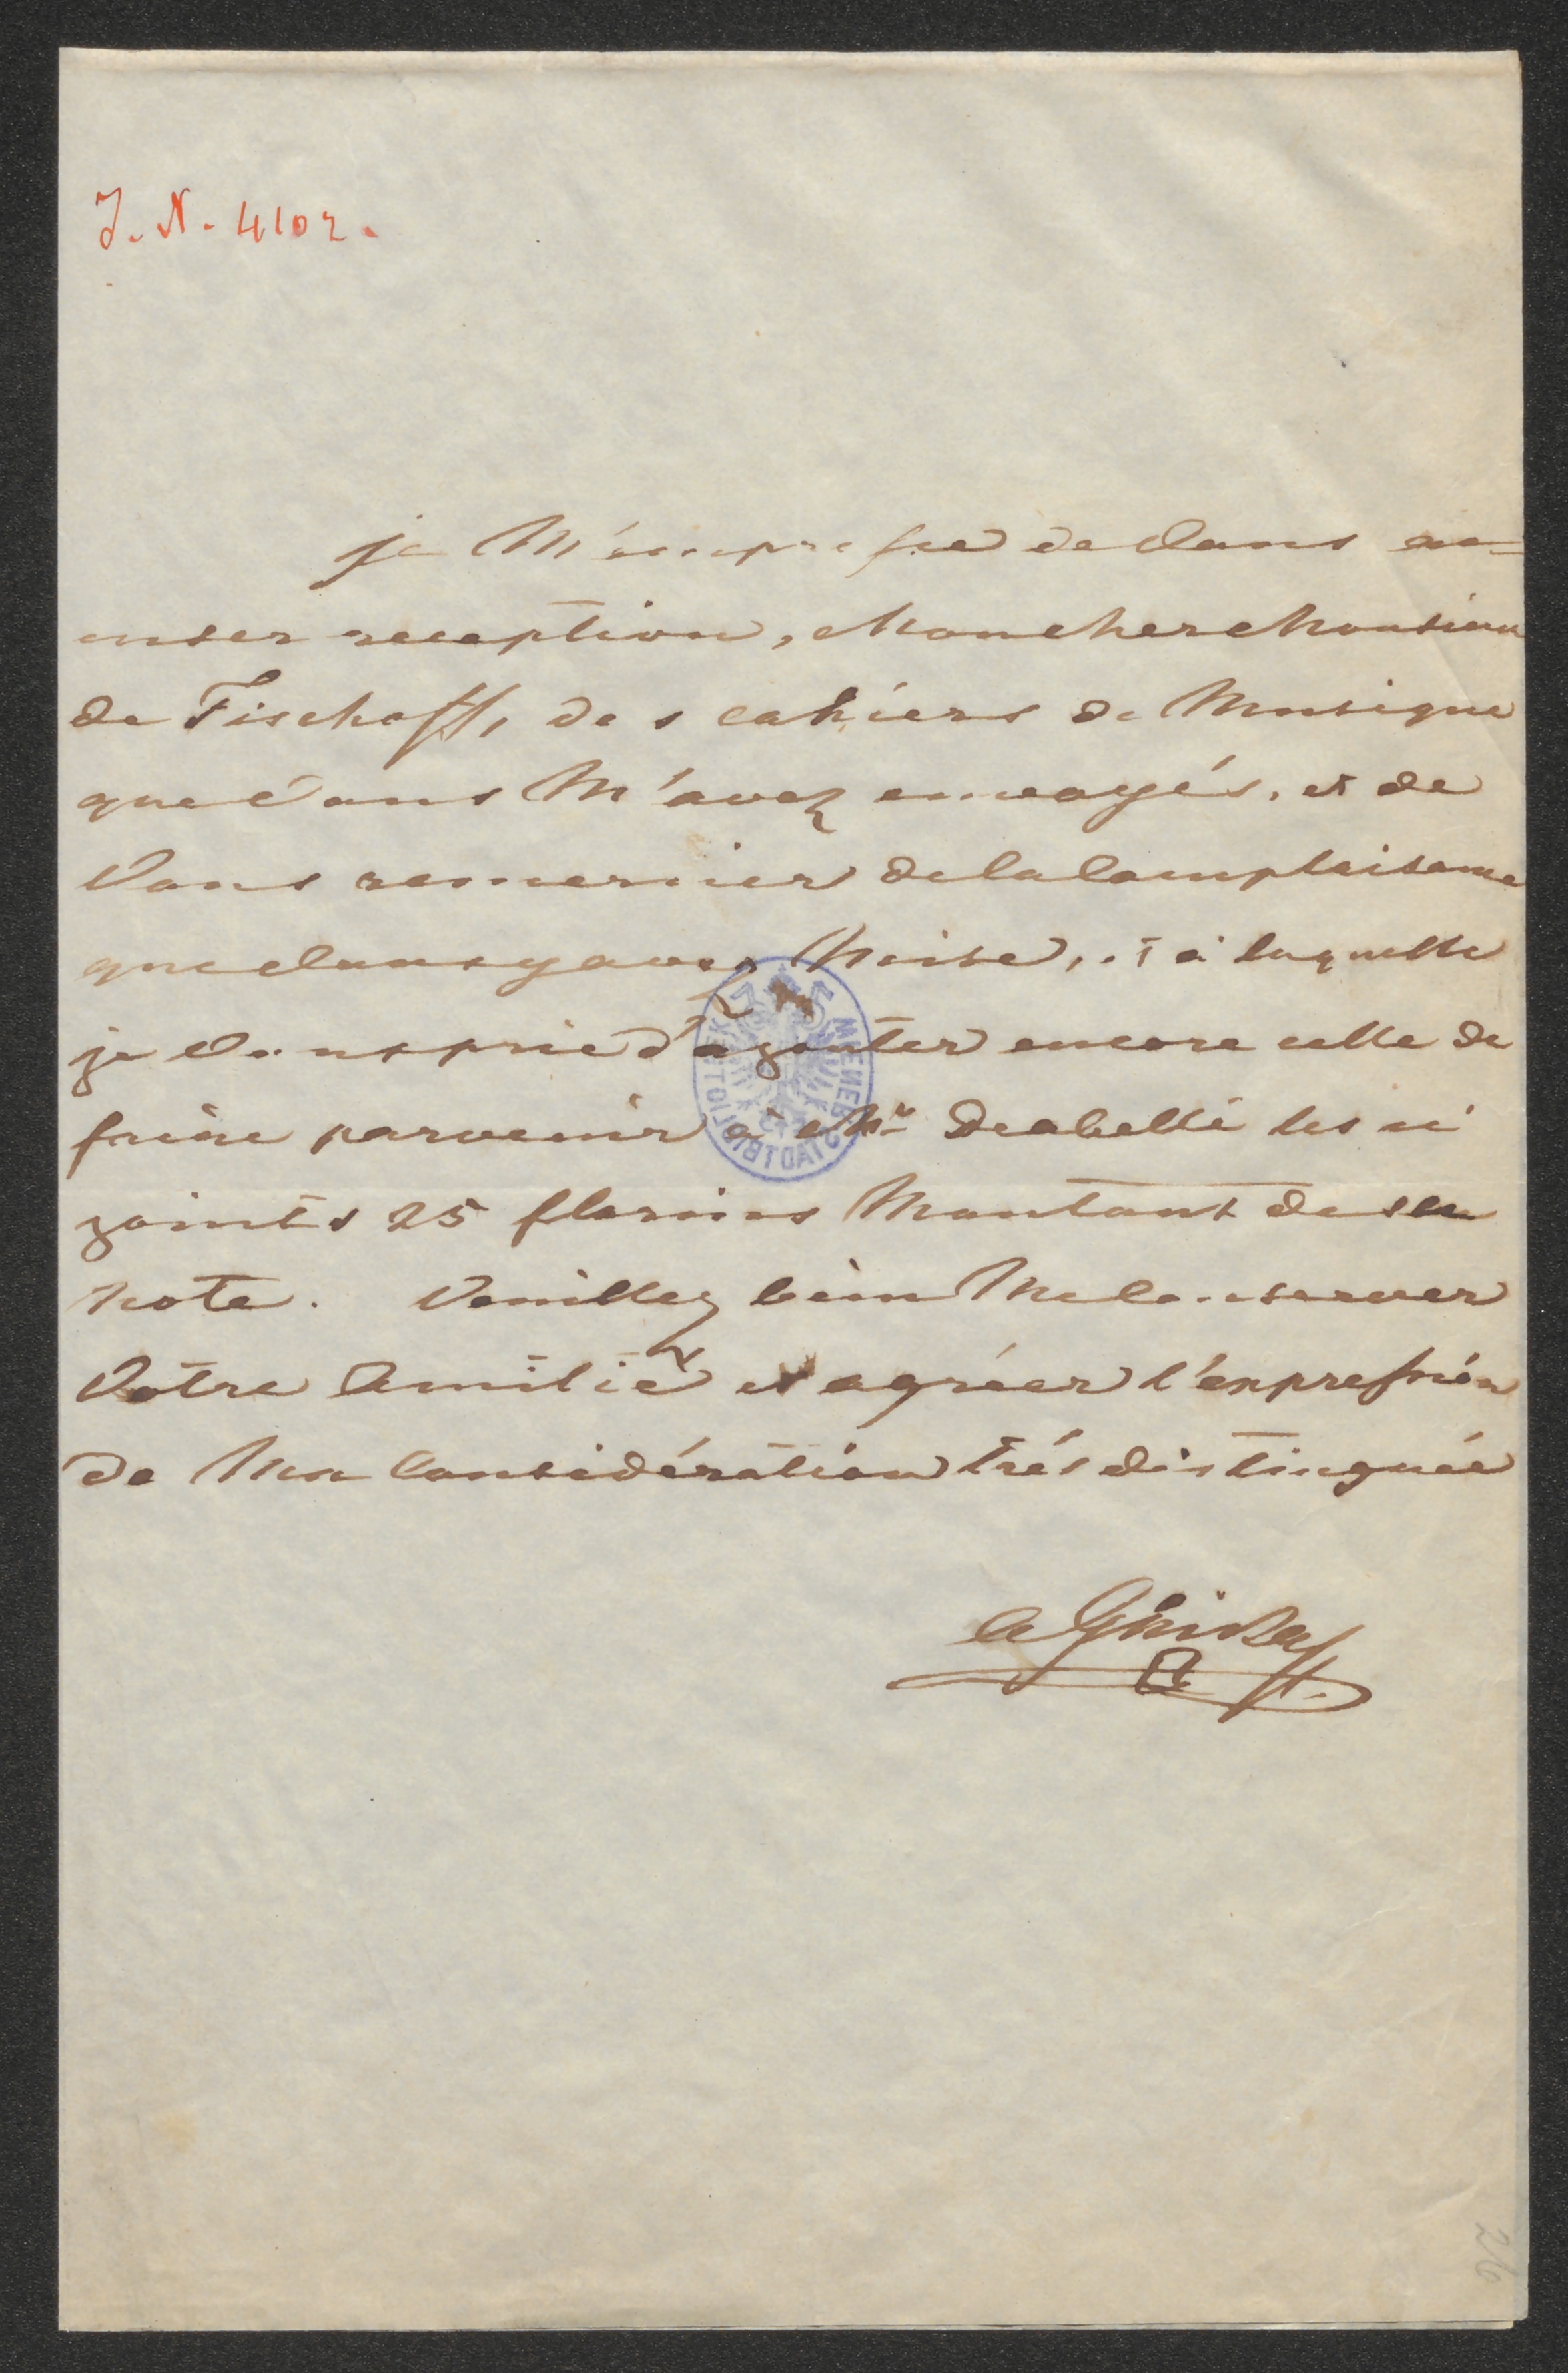 J. N. 4102.
je M'empresse de Vous ac=
cuser reception, Mon cher Monsieur
de Fischoff, des cahiers de Musique
que Vous M'avez envoyés, et de
Vous remercier de la Complaisance
que Vous y avez Mise, et à laquelle
je Vous prie d'ajouter encore celle de
faire parvenir à Mr Deabelli les ci
joints 25 florins Montant de sa
Note. Veuillez bien Me Conserver
Votre Amitié et agréer l'expression
de Ma Considération trés distinguée
A Ghika
26